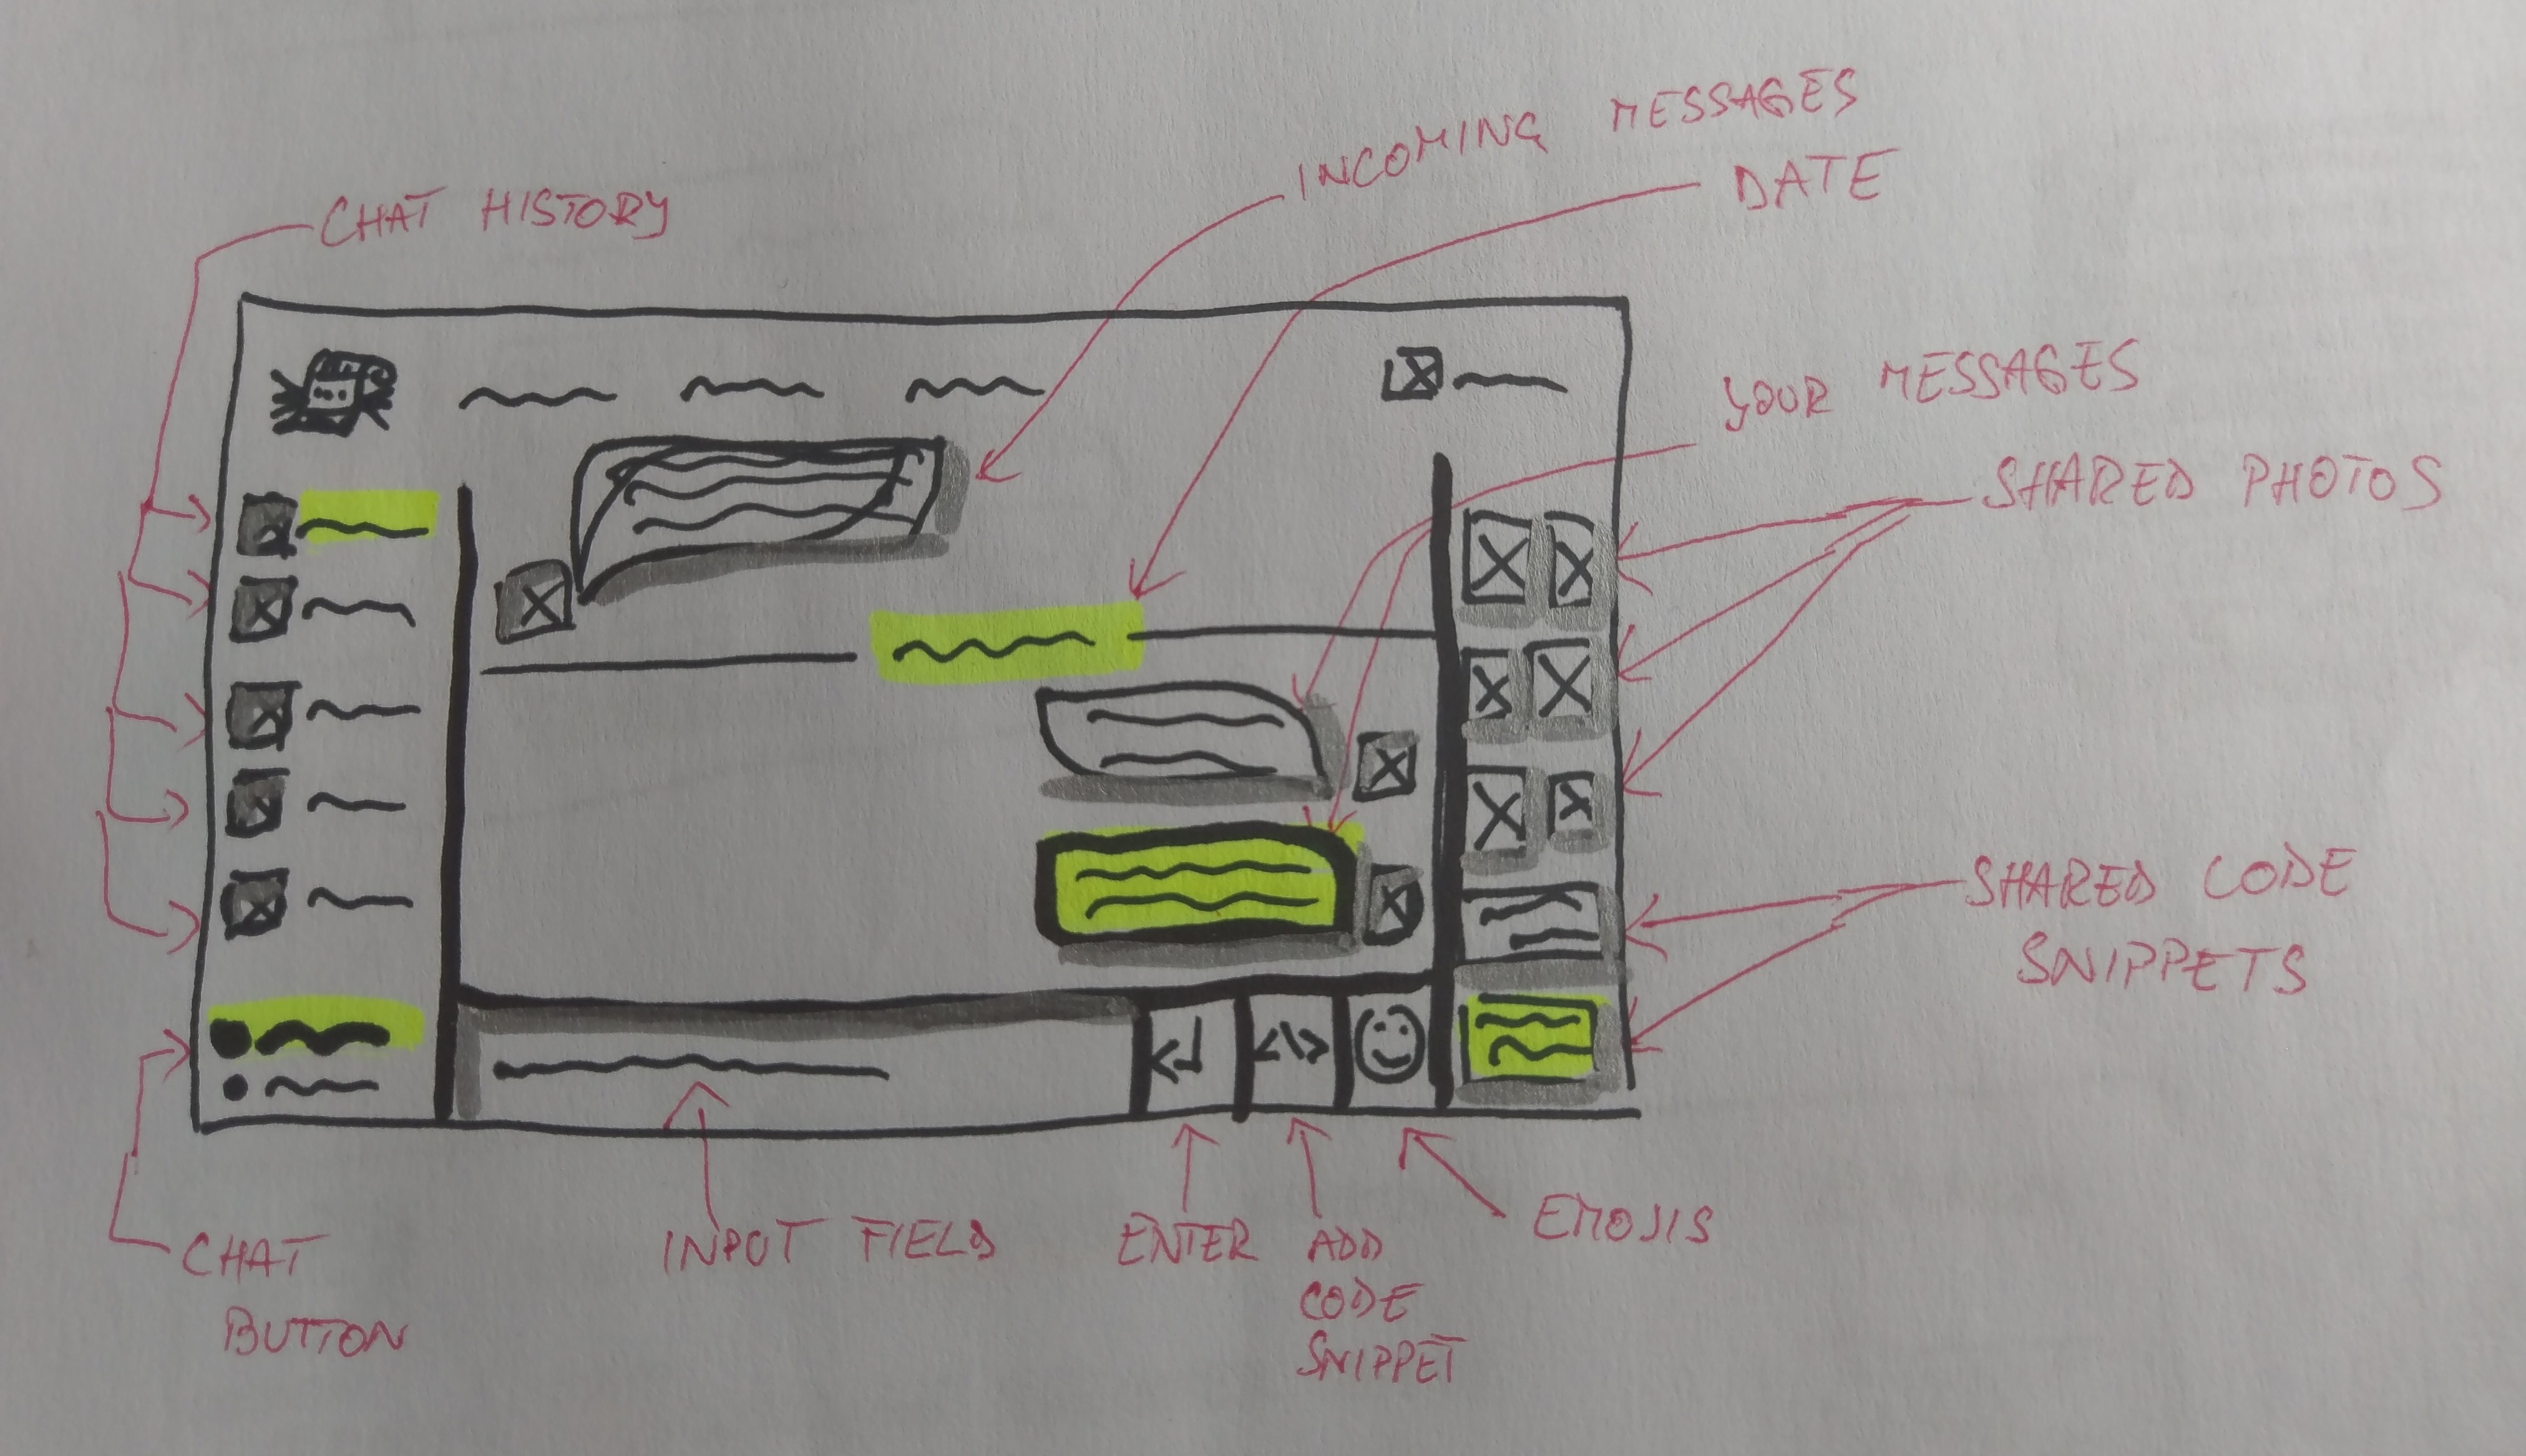 INCOMING MESSAGES
DATE
CHAT HISTORY
YOUR MESSAGES
SHARED PHOTOS
SHARED CODE
SNIPPETS
</>
CHAT
BUTTON
INPUT FIELD
ENTER
ADD
CODE
SNIPPET
EMOJIS